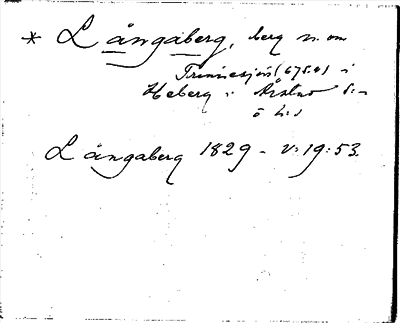 * Långaberg, berg n. om
Trinnesjön (675.4) i
Heberg i
ö h:d
Långaberg 1829 - V: 19: 53.